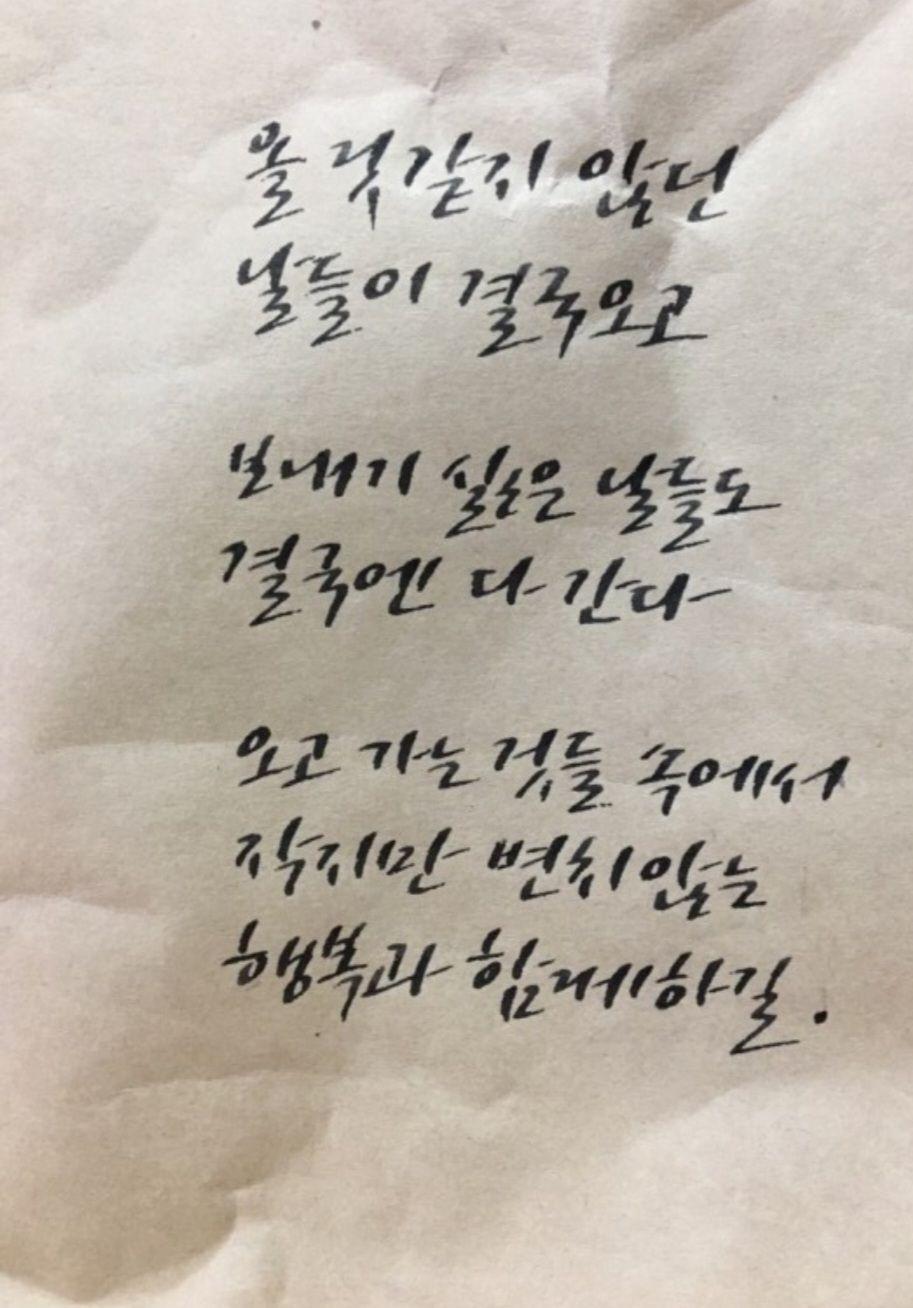 올 것 같지 않던
날들이 결국 오고
보내기 싫은 날들도
결국엔 다 간다
오고 가는 것들 속에서
작지만 변치 않는
행복과 함께하길.